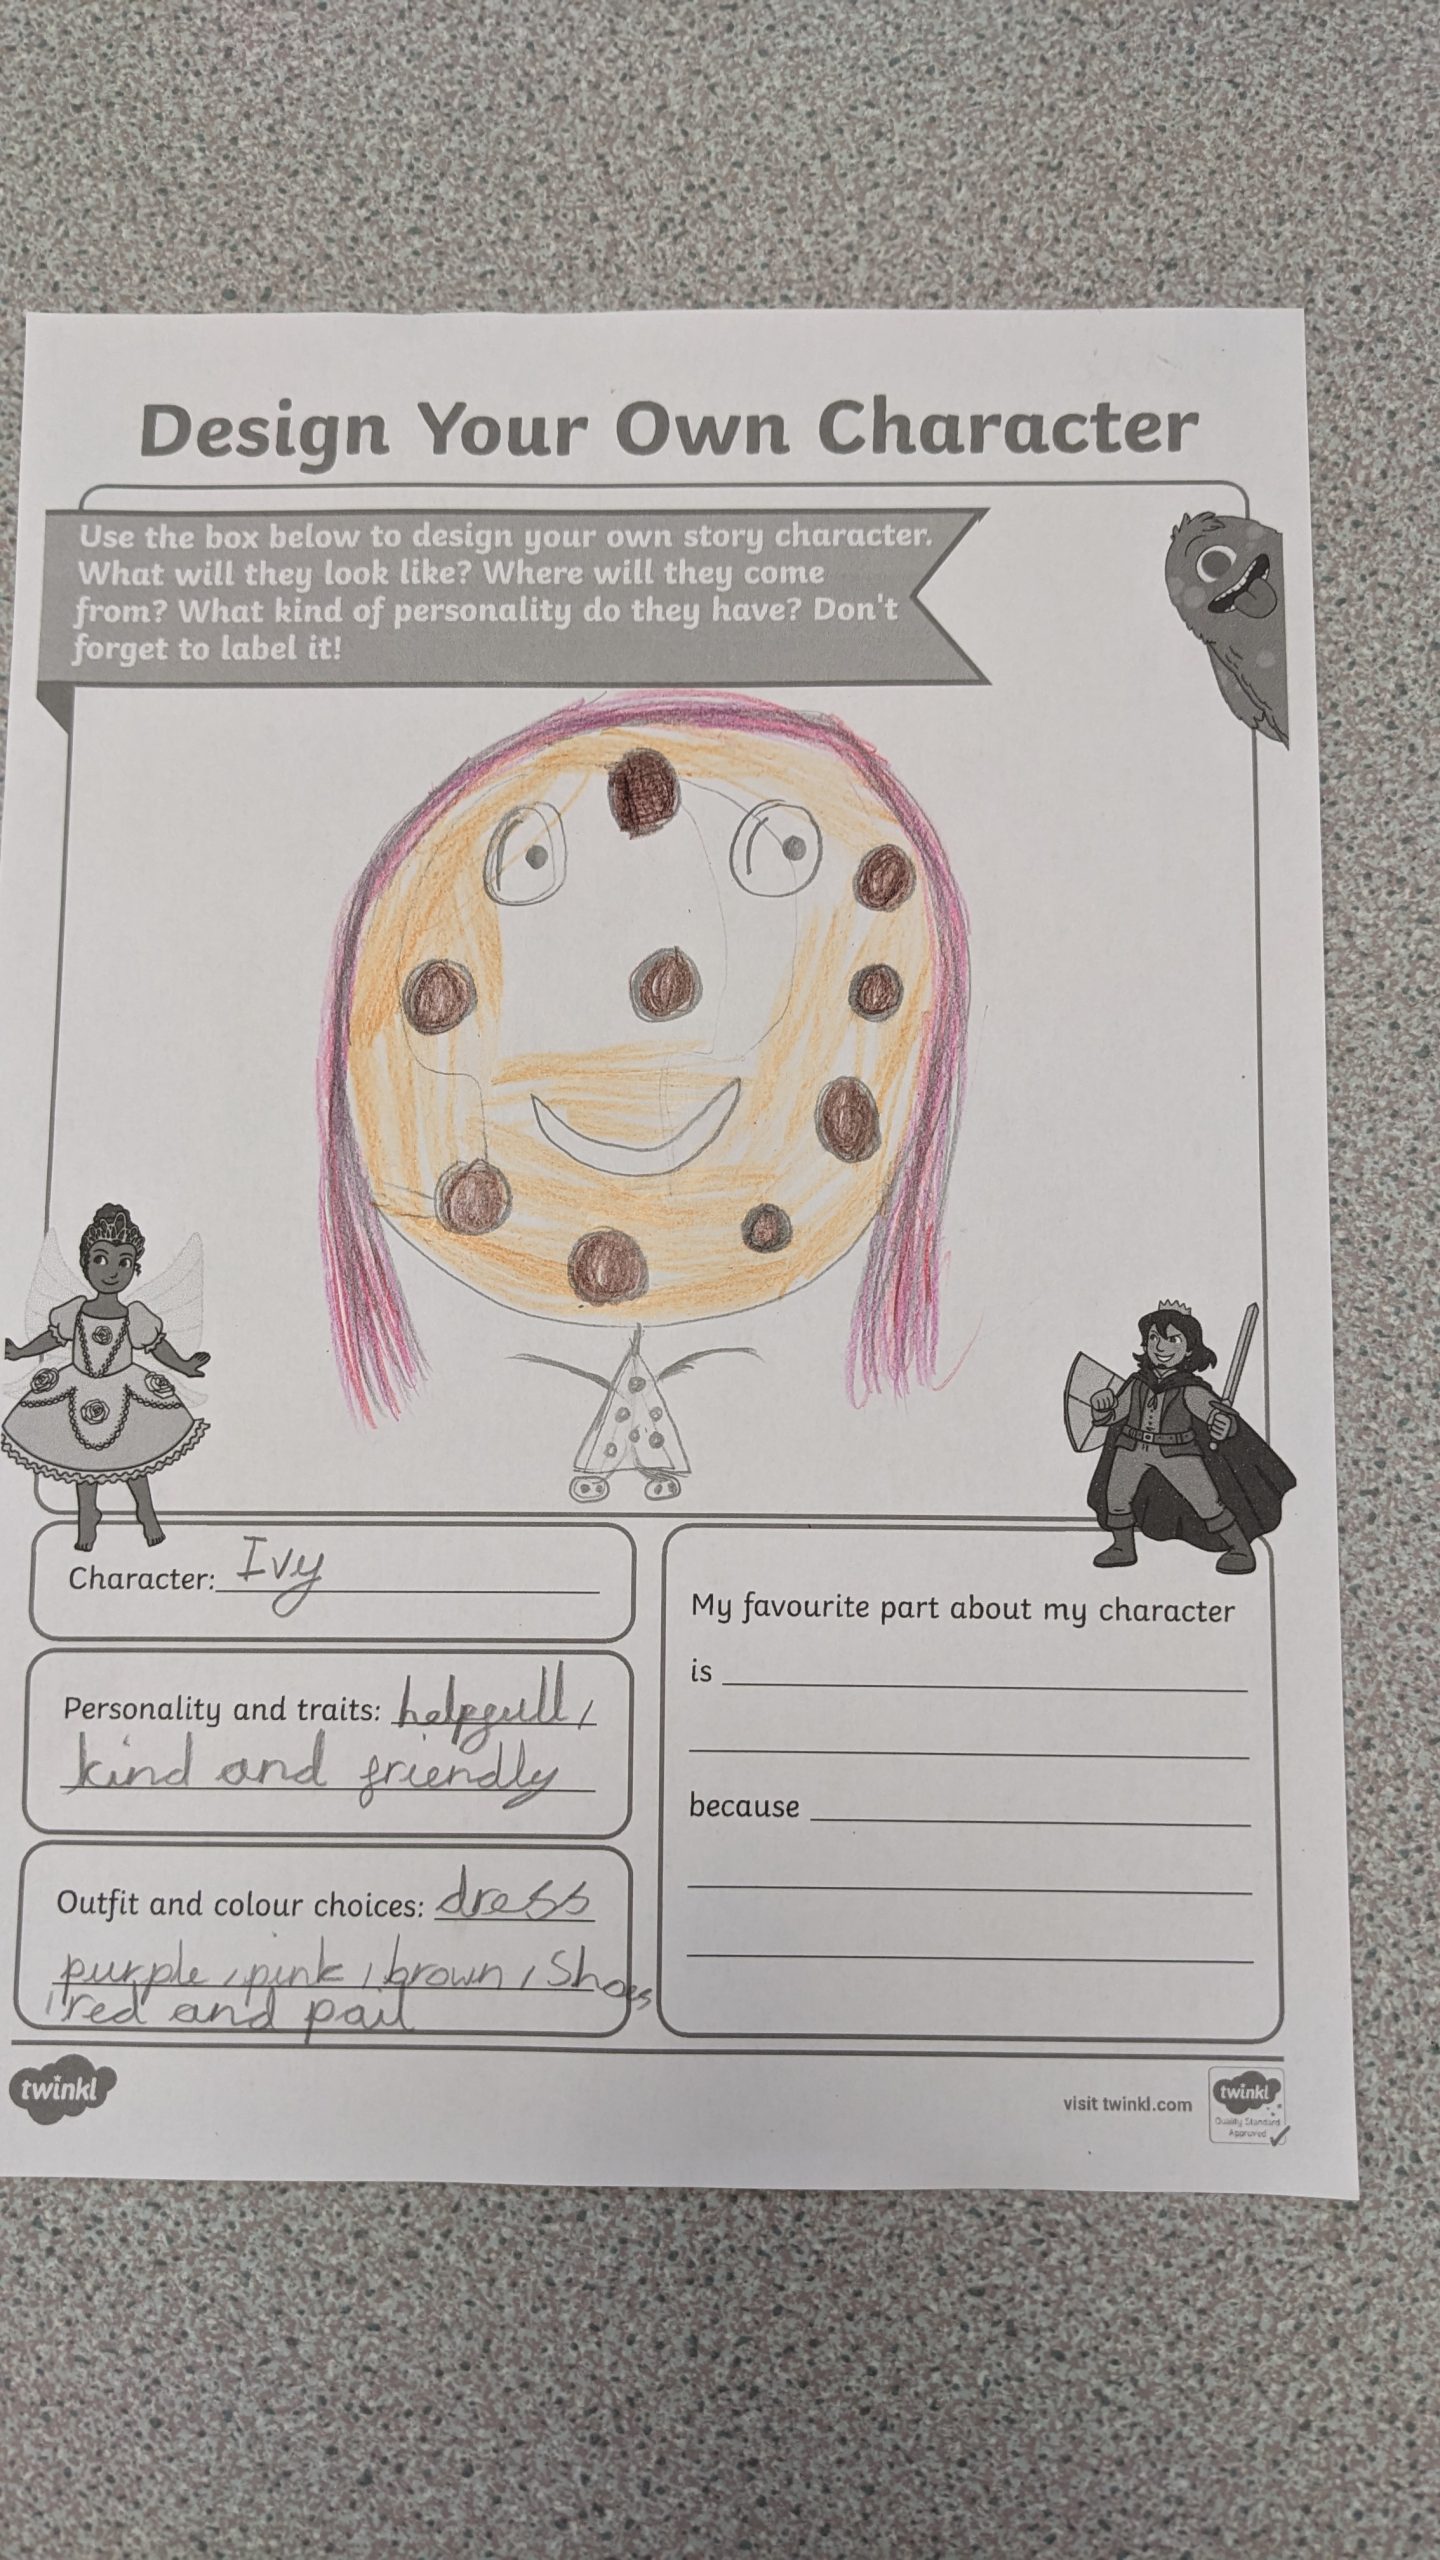 Design Your Own Character
Use the box below to design your own story character.
What will they look like? Where will they come
from? What kind of personality do they have? Don't
forget to label it!
Character: Ivy
Personality and traits: helpgull,
kind and friendly
Outfit and colour choices: dress
purple, pink, brown, shoes
, red and pail
My favourite part about my character
is
because
twinkl
visit twinkl.com
twinkl
Quality Standard
Approved